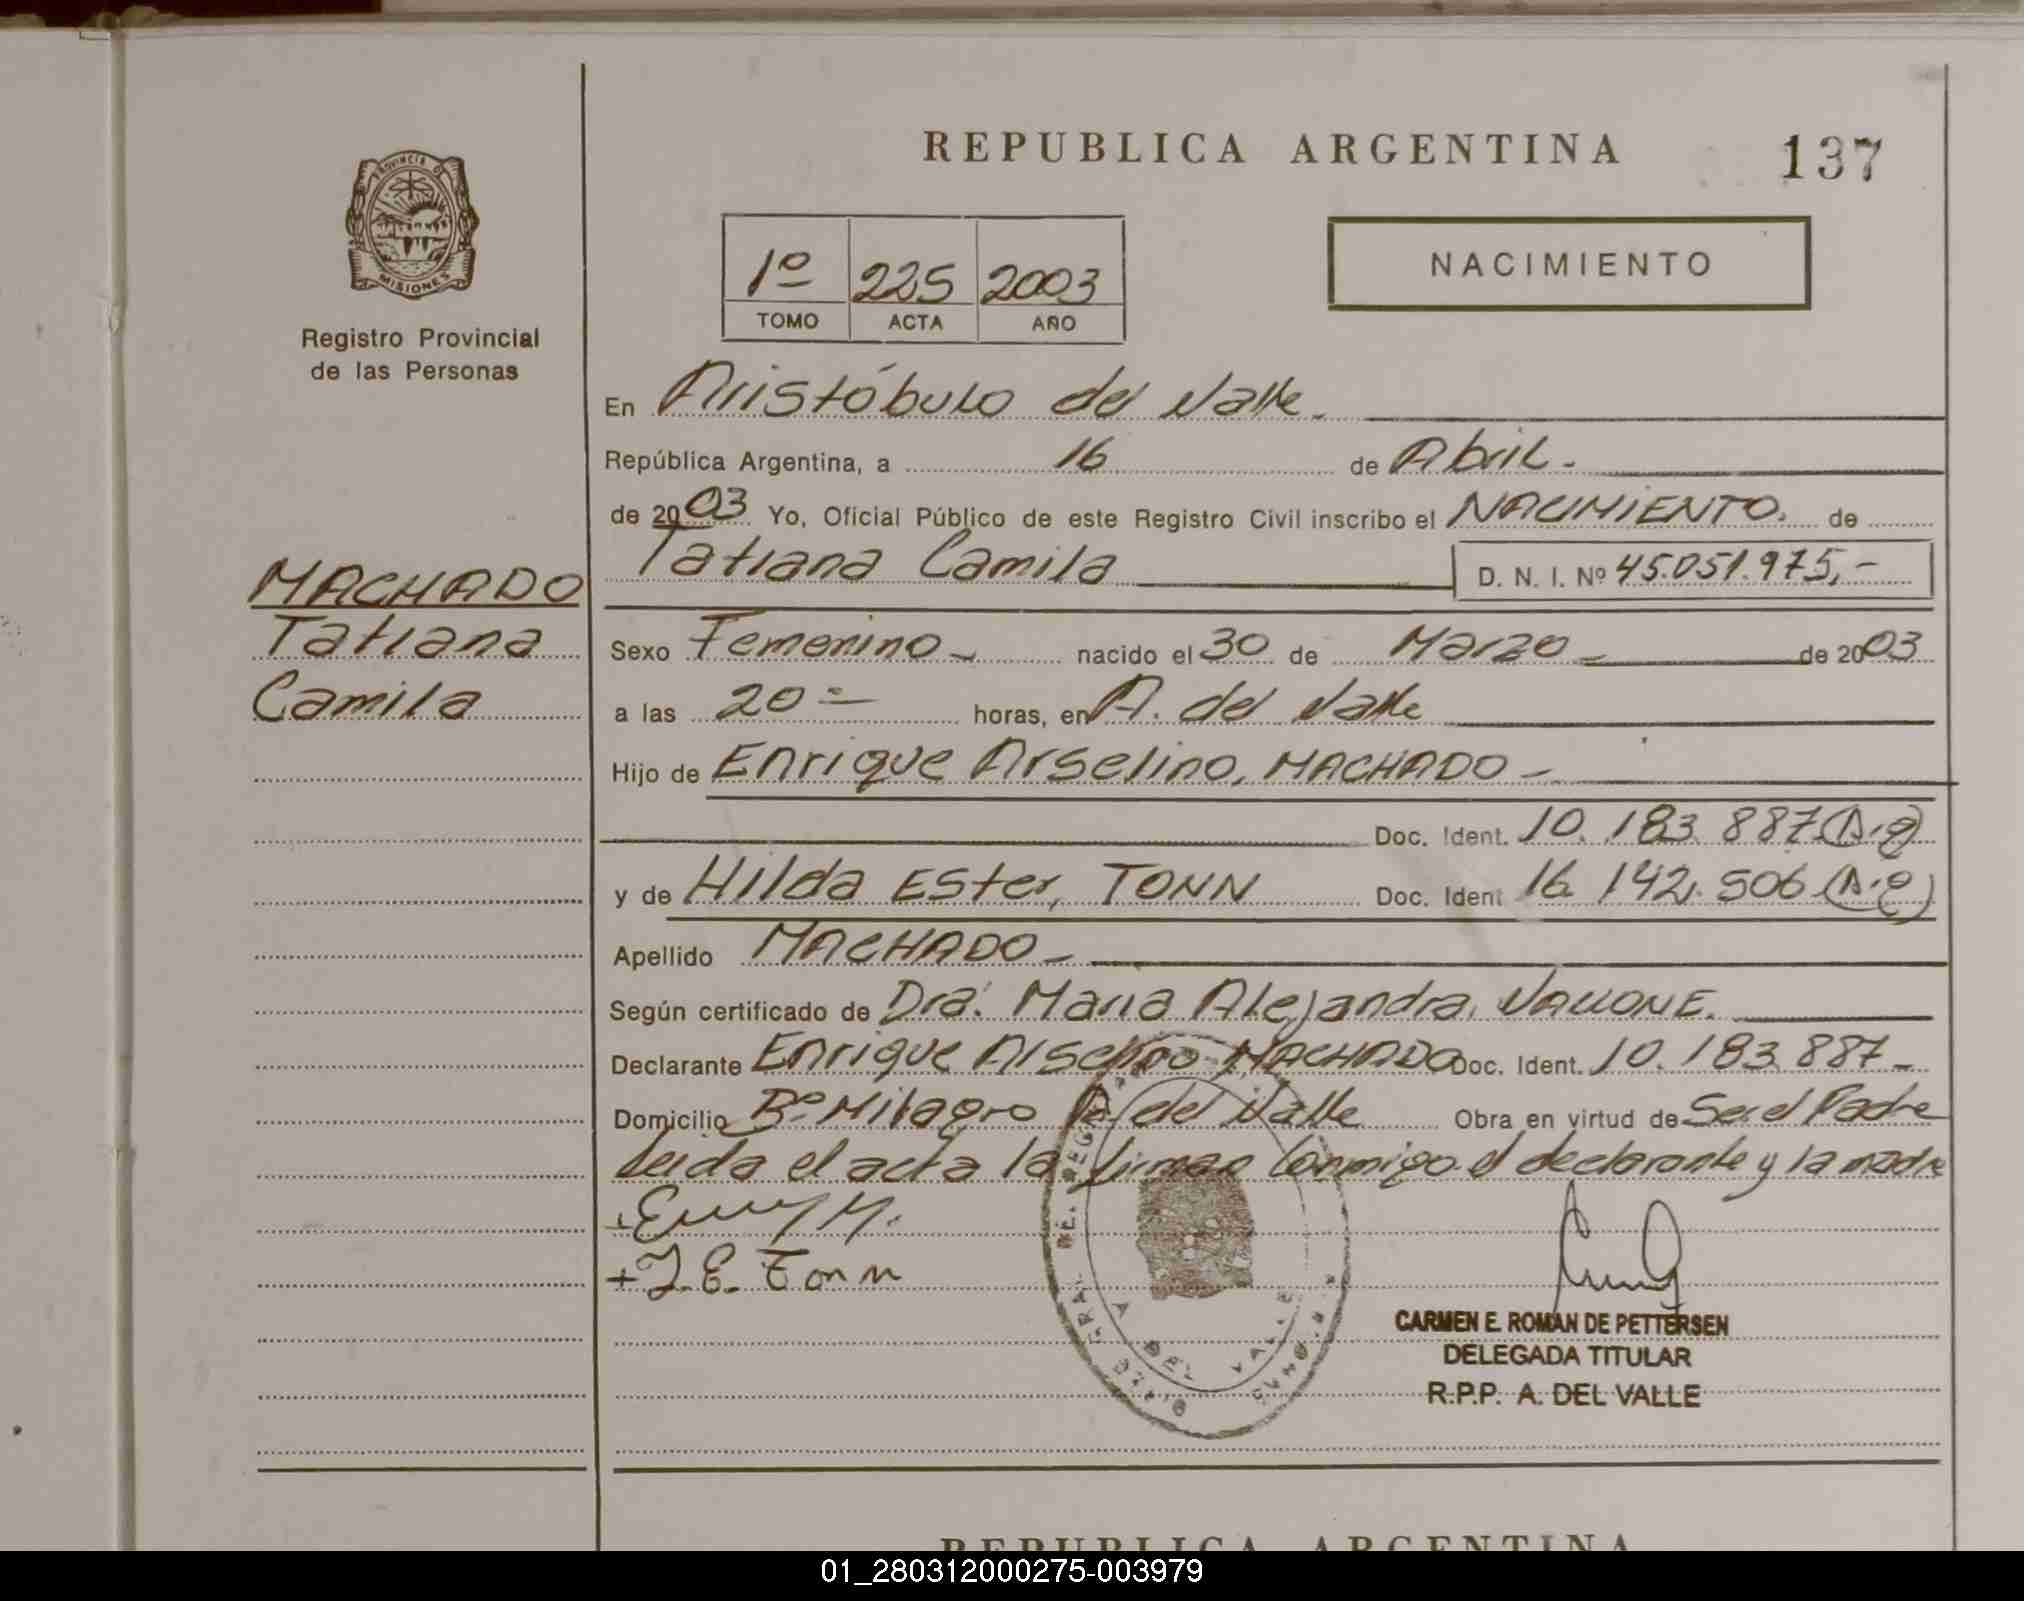 REPUBLICA ARGENTINA
137
PROVINCIA DE
MISIONES
Registro Provincial
de las Personas
1º 225 2003
TOMO ACTA AÑO
NACIMIENTO
En Aristóbulo del Valle.
República Argentina, a 16 de Abril.-
de 2003 Yo, Oficial Público de este Registro Civil inscribo el NACIMIENTO. de
Tatiana Camila D. N. I. Nº 45.051.975,-
MACHADO
Tatiana
Camila
Sexo Femenino- nacido el 30 de Marzo- de 2003
a las 20 horas, en A. del Valle
Hijo de Enrique Arselino, MACHADO-
Doc. Ident. 10.183.887.
y de Hilda Ester, TONN Doc. Ident 16.142.506
Apellido MACHADO-
Según certificado de Dra. Maria Alejandra, VALLONE.
Declarante Enrique Arselino MACHADO Doc. Ident. 10.183.887-
Domicilio Bº Milagro A. del Valle Obra en virtud de Ser el Padre
Leida el acta la firman conmigo el declarante y la madre
E. Tonn
CARMEN E. ROMAN DE PETTERSEN
DELEGADA TITULAR
R.P.P. A. DEL VALLE
A DEL VALLE
REPUBLICA ARGENTINA
01_280312000275-003979